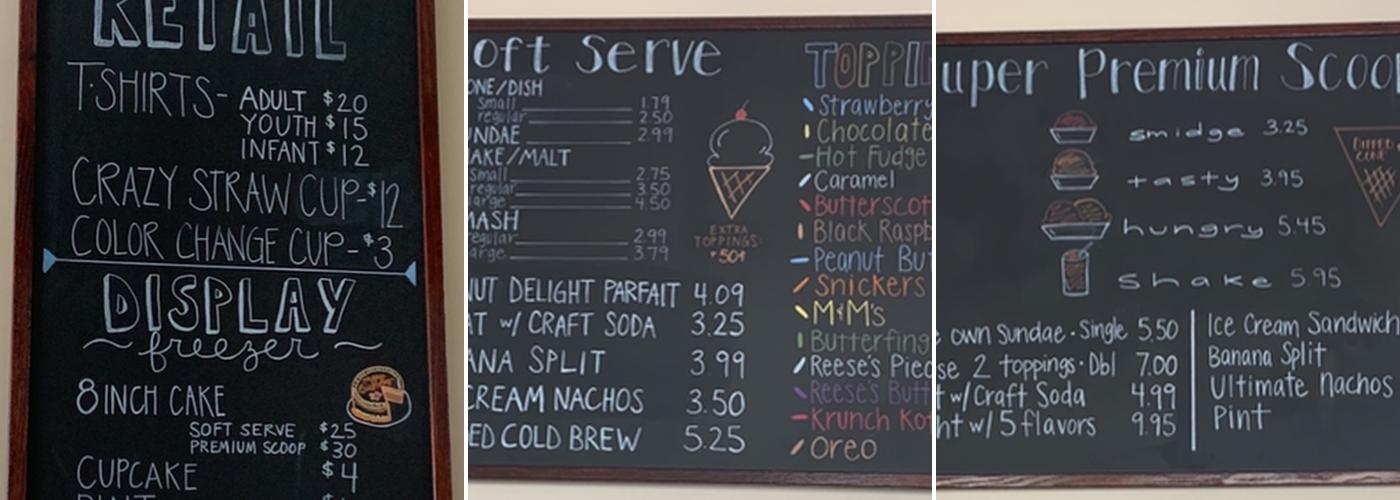 RETAIL
T-SHIRTS- ADULT $20
YOUTH $15
INFANT $12
CRAZY STRAW CUP-$12
COLOR CHANGE CUP-$3
DISPLAY
freezer
8 INCH CAKE
SOFT SERVE $25
PREMIUM SCOOP $30
CUPCAKE $4
oft Serve
ONE/DISH
small 1.79
regular 2.50
NDAE 2.99
AKE/MALT
small 2.75
regular 3.50
large 4.50
MASH
regular 2.99
arge 3.79
EXTRA
TOPPINGS
+50¢
NUT DELIGHT PARFAIT 4.09
AT w/ CRAFT SODA 3.25
ANA SPLIT 3.99
CREAM NACHOS 3.50
ED COLD BREW 5.25
TOPPIN
Strawberry
Chocolate
Hot Fudge
Caramel
Butterscot
Black Raspb
Peanut But
Snickers
M&M's
Butterfing
Reese's Piec
Reese's Butt
Krunch Kot
Oreo
uper Premium Scoo
smidge 3.25
tasty 3.95
hungry 5.45
shake 5.95
DIPPED
CONE
own Sundae · Single 5.50
se 2 toppings · Dbl 7.00
t w/ Craft Soda 4.99
ht w/ 5 flavors 9.95
Ice Cream Sandwich
Banana Split
Ultimate Nachos
Pint